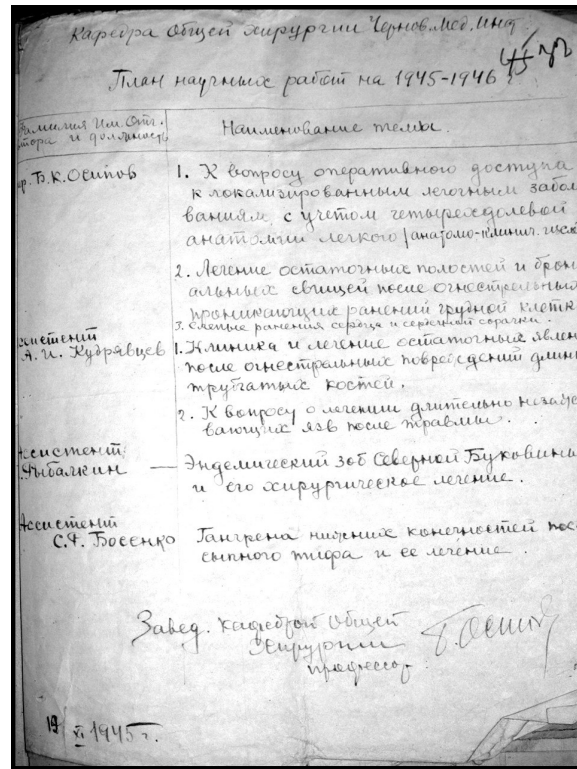 Кафедра Общей хирургии Чернов. Мед. Инд.
План научных работ на 1945-1946 г.
Фамилия Им. Отч.
втора и должность
Наименование темы.
пр. Б. К. Осипов
1. К вопросу оперативного доступа
к локализированным легочным забол
ваниям с учетом четырехдолевой
анатомии легкого /анатомо-клинич. иссл
2. Лечение остаточных полостей и брон
альных свищей после огнестрельных
проникающих ранений грудной клетк
3. Слепые ранения сердца и сердечной сорочки.
ссистент
А. И. Кудрявцев
1. Клиника и лечение остаточных явлен
после огнестрельных повреждений длин
трубчатых костей.
2. К вопросу о лечении длительно незажи
вающих язв после травмы.
Ассистент
Рыбалкин —
Эндемический зоб Северной Буковины
и его хирургическое лечение.
Ассистент
С. Ф. Босенко
Гангрена нижних конечностей пос
сыпного тифа и ее лечение.
Завед. кафедрой Общей
Хирургии
профессор
Б. Осипов
19 XI 1945 г.